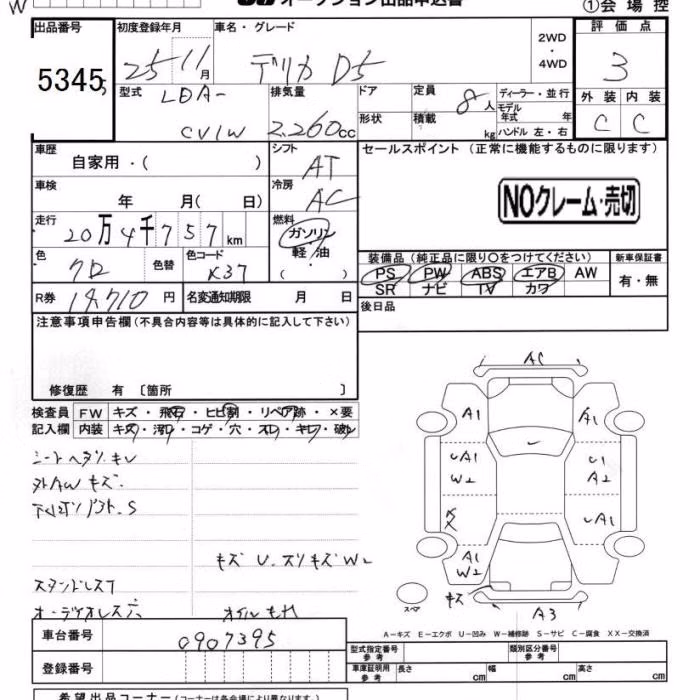 オークション出品申込書
①会場控
出品番号
初度登録年月
車名・グレード
評価点
5345
25-11月
デリカ D5
2WD
・
4WD
3
型式
LDA-
CV1W
排気量
2,260cc
ドア
定員
8人
ディーラー・並行
モデル
年式 年
形状
積載
kg
ハンドル 左・右
外装
内装
C
C
車歴
自家用・( )
シフト
AT
セールスポイント (正常に機能するものに限ります)
車検
年 月( 日)
冷房
AC
NOクレーム・売切
走行
20万4千757km
燃料
ガソリン
軽・油
( )
色
クロ
色替
色コード
X37
装備品 (純正品に限り○をつけてください)
新車保証書
PS PW ABS エアB AW
SR ナビ TV カワ
有・無
R券
円
名変通知期限 月 日
後日品
注意事項申告欄 (不具合内容等は具体的に記入して下さい)
修復歴 有 〔箇所 〕
検査員
記入欄
FW キズ・飛石・ヒビ割・リペア跡・×要
内装 キズ・汚レ・コゲ・穴・スレ・キレ・破レ
外AWキズ.
キズ U. スリキズ W2
AC
A1
A1
UA1
W2
U1
A2
UA1
A1
W2
キズ
A3
スペア
A-キズ E-エクボ U-凹み W-補修跡 S-サビ C-腐食 XX-交換済
車台番号
0907395
登録番号
型式指定番号
参考
類別区分番号
参考
車庫証明用
参考
長さ cm
幅 cm
高さ cm
希望出品コーナー (コーナーは各会場により異なります。